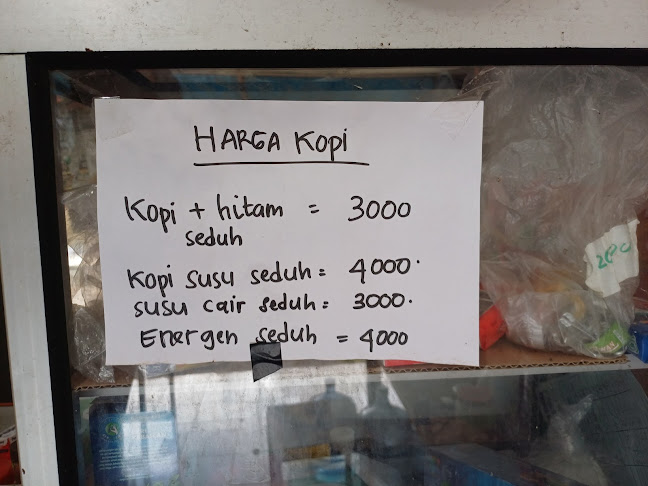 HARGA Kopi
Kopi + hitam = 3000
seduh
Kopi susu seduh = 4000.
susu cair seduh = 3000.
Energen seduh = 4000